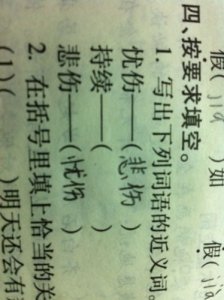 假(jià)如 假(jià
四、按要求填空。
1. 写出下列词语的近义词
忧伤——(悲伤)
持续——(
悲伤——(忧伤)
2. 在括号里填上恰当的关
(1)( )明天还会有